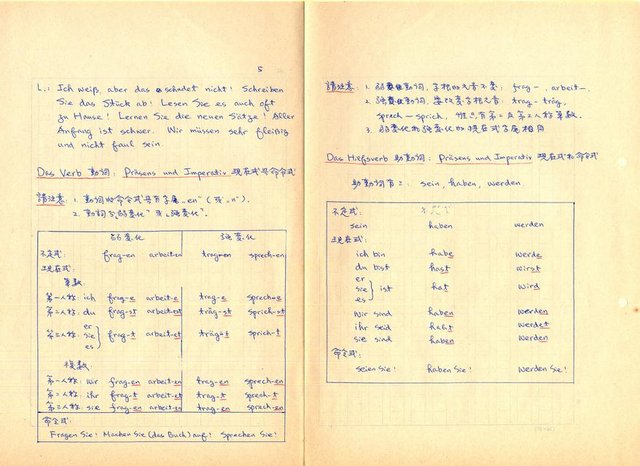 5
L.: Ich weiß, aber das schadet nicht! Schreiben
Sie das Stück ab! Lesen Sie es auch oft
zu Hause! Lernen Sie die neuen Sätze! Aller
Anfang ist schwer. Wir müssen sehr fleißig
und nicht faul sein.
Das Verb 動詞: Präsens und Imperativ 現在式與命令式
請注意: 1. 動詞的命令式皆有字尾 „en“ (或 „n“).
2. 動詞分„弱變化“ 與„強變化“.
弱變化 強變化
不定式: frag-en arbeit-en trag-en sprech-en
現在式:
單數:
第一人稱: ich frag-e arbeit-e trag-e sprech-e
第二人稱: du frag-st arbeit-est träg-st sprich-st
第三人稱: er sie es frag-t arbeit-et träg-t sprich-t
複數:
第一人稱: wir frag-en arbeit-en trag-en sprech-en
第二人稱: ihr frag-t arbeit-et trag-t sprech-t
第三人稱: sie frag-en arbeit-en trag-en sprech-en
命令式:
Fragen Sie! Machen Sie (das Buch) auf! Sprechen Sie!
請注意: 1. 弱變化動詞, 字根的元音不變: frag-, arbeit-.
2. 強變化動詞, 要改變字根元音: trag- träg,
sprech- sprich, 但只有第二及第三人稱單數.
3. 弱變化和強變化的現在式字尾相同
Das Hilfsverb 助動詞: Präsens und Imperativ 現在式和命令式
助動詞有三: sein, haben, werden
不定式:
sein haben werden
現在式:
ich bin habe werde
du bist hast wirst
er sie es ist hat wird
Wir sind haben werden
ihr seid habt werdet
sie sind haben werden
命令式:
seien Sie! haben Sie! werden Sie!